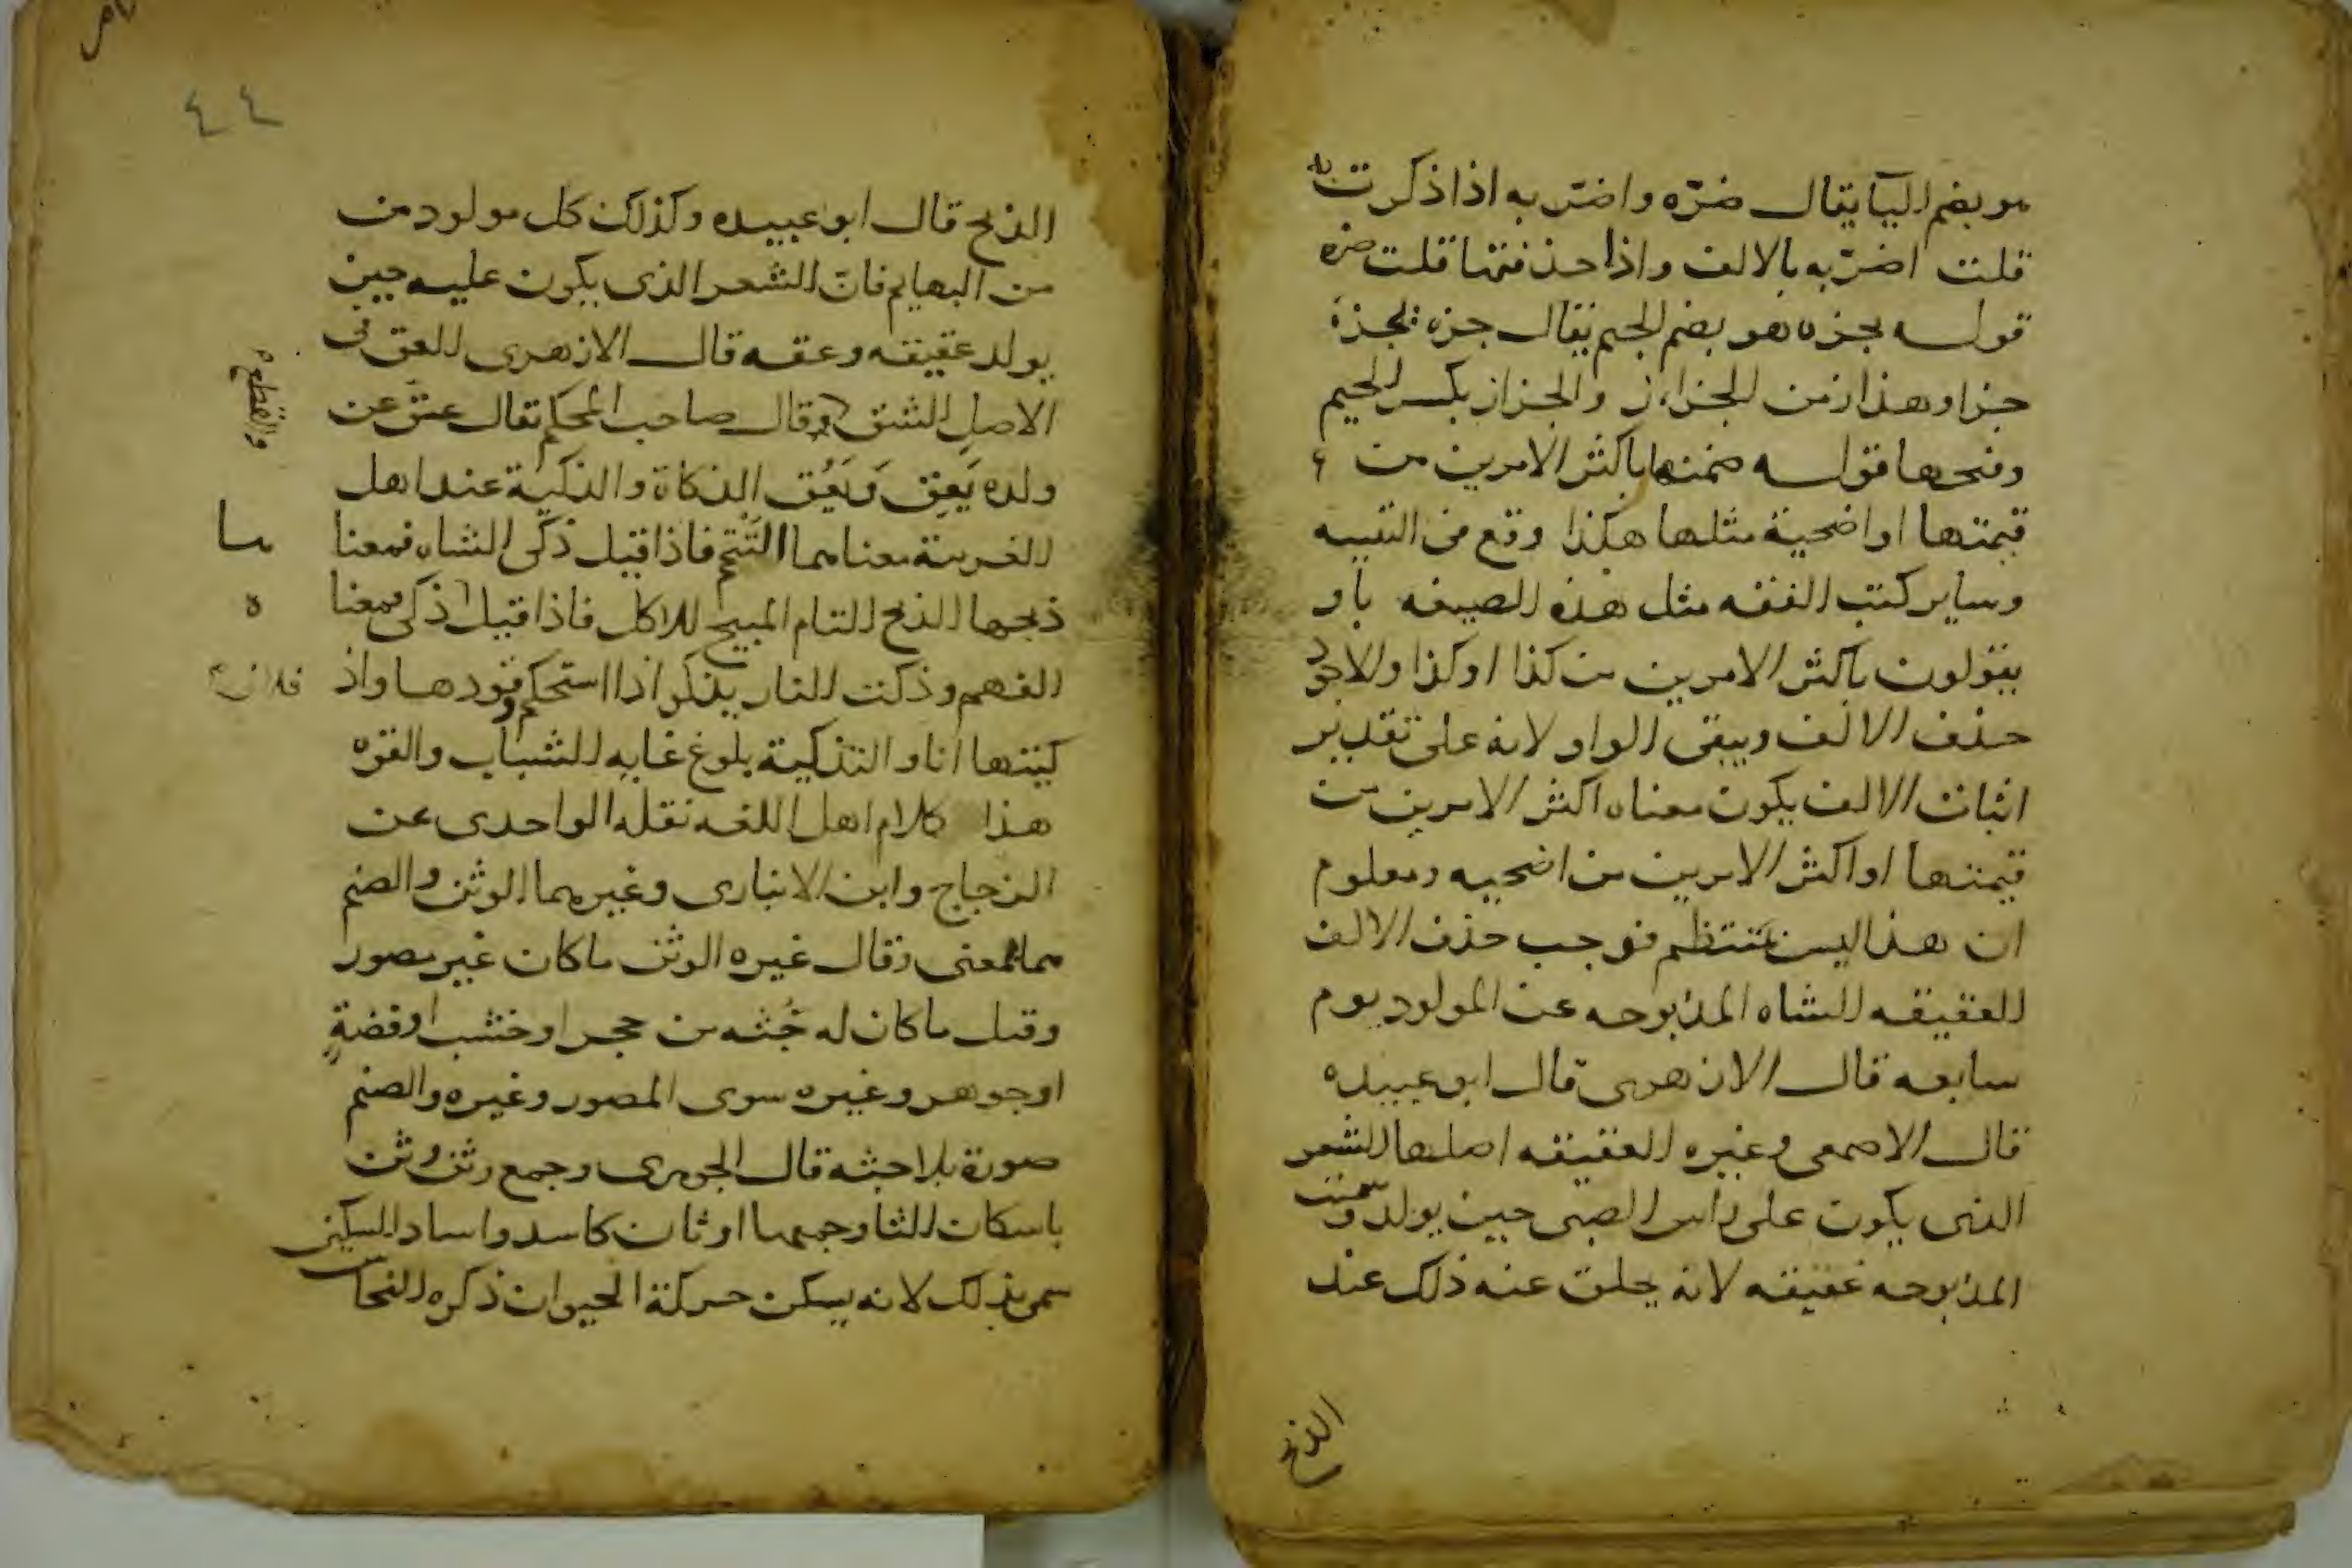 هو بضم اليآ يقال ضرّه واضرّ به اذا ذكرت به
قلت اضرّ به بالالف واذا حذفتها قلت ضره
قوله يجزه هو بضم الجيم يقال جزه يجزه
جزا وهذا زمن الجزاز والجزاز بكسر الجيم
وفتحها قوله ضمنها باكثر الامرين من
قيمتها او اضحية مثلها هكذا وقع في التنبيه
وساير كتب الفقه مثل هذه الصيغه باو
يقولون باكثر الامرين من كذا او كذا والاجود
حذف الالف ويبقى الواو لانه على تقدير
اثبات الالف يكون معناه اكثر الامرين من
قيمتها او اكثر الامرين من اضحيه ومعلوم
ان هذا ليس بمنتظم فوجب حذف الالف
العقيقه الشاه المذبوحه عن المولود يوم
سابعه قال الازهرى قال ابو عبيده
قال الاصمعى وغيره العقيقه اصلها الشعر
الذى يكون على راس الصبى حين يولد وسميت
المذبوحه عقيقه لانه يحلق عنه ذلك عند
الذبح
٤٤
الذبح قال ابو عبيده وكذلك كل مولود من
من البهايم فان الشعر الذى يكون عليه حين
يولد عقيقه وعقه قال الازهرى العق فى
الاصل الشق وقال صاحب المحكم يقال عق عن
والقطع
ولده يَعِق وَيَعُق الذكاة والذكية عند اهل
اللغة معناهما التتم فاذا قيل ذكى الشاه فمعنا
ها
ذبحها الذبح التام المبيح للاكل فاذا قيل ذكى فمعنا
ه
الفهم وذكت النار يذكو اذا استحكم وقودها واذ
كيتها انا والتذكية بلوغ غايه الشباب والقوه
هذا كلام اهل اللغه نقله الواحدى عن
الزجاج وابن الانبارى وغيرهما الوثن والصنم
هما بمعنى وقال غيره الوثن ما كان غير مصور
وقيل ما كان له جُثه من حجر او خشب او فضةٍ
او جوهر وغيره سوى المصور وغيره والصنم
صورة بلا جثه قال الجوهرى وجمع وثن وثن
باسكان الثا وجمعها اوثان كاسد واساد السكين
سمى بذلك لانه يسكن حركة الحيوان ذكره النحاس